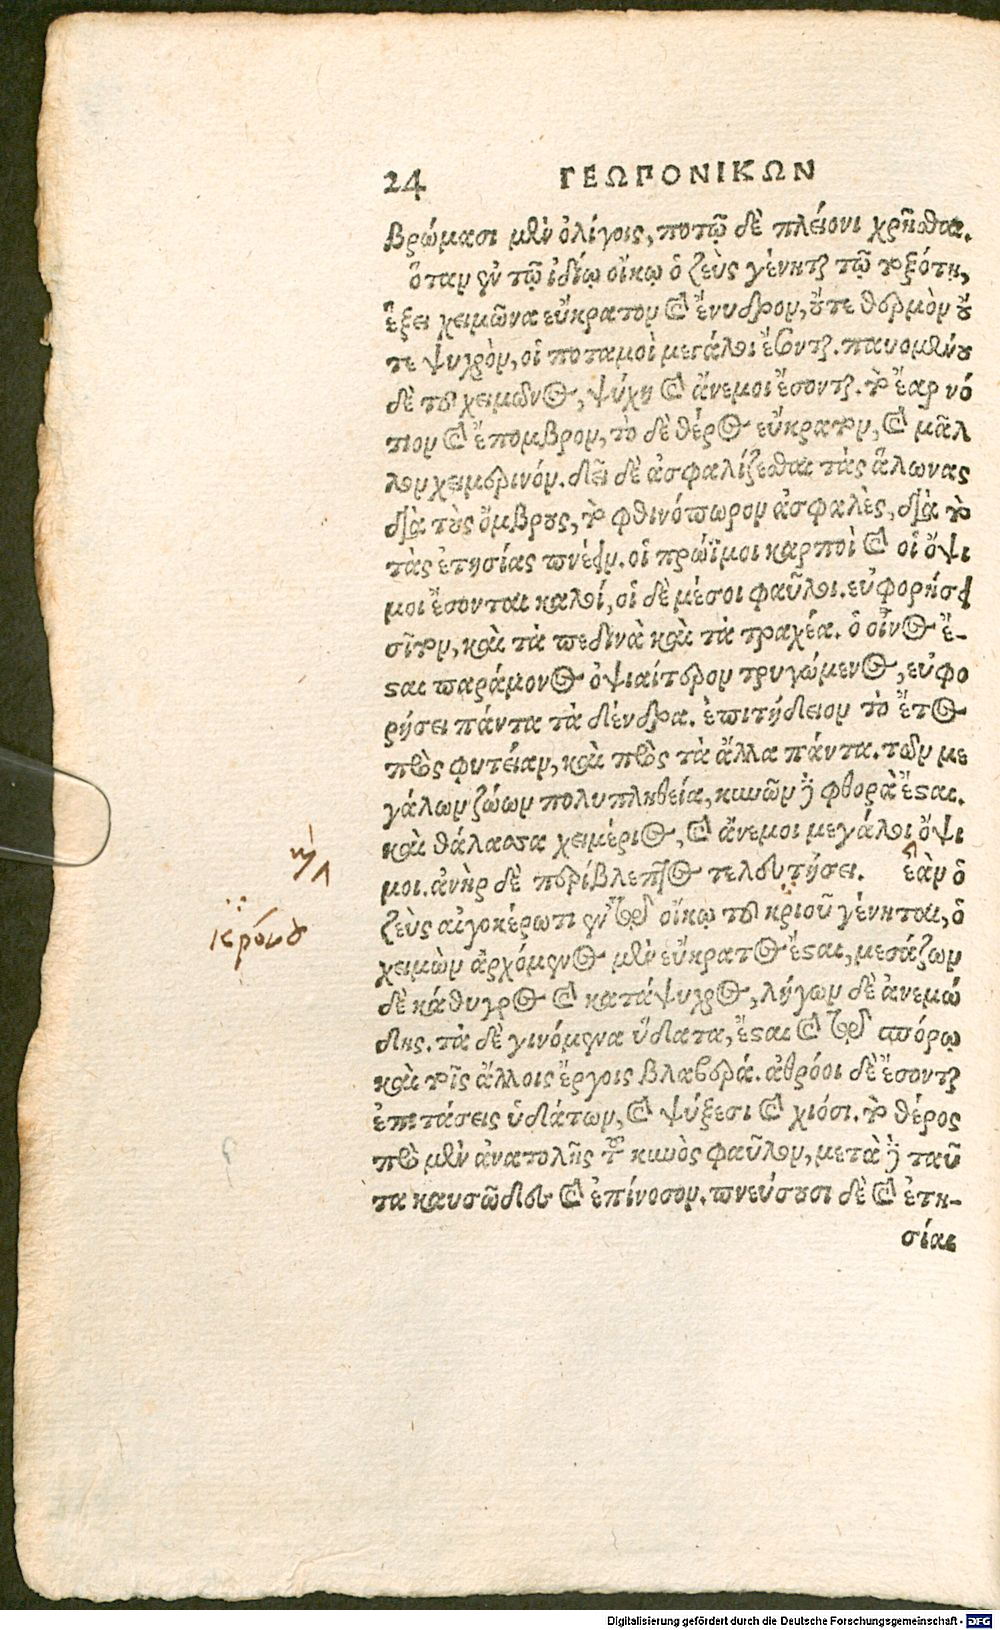 24 ΓΕΩΠΟΝΙΚΩΝ
βρώμασι μὲν ὀλίγοις, ποτῷ δὲ πλείονι χρῆσθαι.
ὅταν ἐν τῷ ἰδίῳ οἴκῳ ὁ ζεὺς γένηται τῷ τοξότῃ,
ἕξει χειμῶνα εὔκρατον καὶ ἔνυδρον, οὔτε θερμὸν οὔ
τε ψυχρὸν, οἱ ποταμοὶ μεγάλοι ἔσονται. παυομένου
δὲ τοῦ χειμῶνος, ψύχη καὶ ἄνεμοι ἔσονται. τὸ ἔαρ νό
τιον καὶ ἔπομβρον, τὸ δὲ θέρος εὔκρατον, καὶ μᾶλ
λον χειμερινόν. δεῖ δὲ ἀσφαλίζεσθαι τὰς ἅλωνας
διὰ τοὺς ὄμβρους, τὸ φθινόπωρον ἀσφαλὲς, διὰ τὸ
τὰς ἐτησίας πνέειν. οἱ πρώϊμοι καρποὶ καὶ οἱ ὄψι
μοι ἔσονται καλοί, οἱ δὲ μέσοι φαῦλοι. εὐφορήσει
σῖτον, καὶ τὰ πεδινὰ καὶ τὰ τραχέα. ὁ οἶνος ἔ-
σαι παράμονος ὀψιαίτερον τρυγώμενος, εὐφο
ρήσει πάντα τὰ δένδρα. ἐπιτήδειον τὸ ἔτος
πρὸς φυτείαν, καὶ πρὸς τὰ ἄλλα πάντα. τῶν με
γάλων ζώων πολυπληθεία, κυνῶν δὲ φθορὰ ἔσται.
καὶ θάλασσα χειμέριος, καὶ ἄνεμοι μεγάλοι ὄψι
μοι. ἀνὴρ δὲ περίβλεπτος τελευτήσει. ἐὰν ὁ
ζεὺς αἰγοκέρωτι ἐν τῷ οἴκῳ τοῦ κριοῦ γένηται, ὁ
κρόνου
χειμὼν ἀρχόμενος μὲν εὔκρατος ἔσται, μεσάζων
δὲ κάθυγρος καὶ κατάψυχρος, λήγων δὲ ἀνεμώ
δης. τὰ δὲ γινόμενα ὕδατα, ἔσται καὶ τῷ σπόρῳ
καὶ τοῖς ἄλλοις ἔργοις βλαβερά. ἀθρόοι δὲ ἔσονται
ἐπιτάσεις ὑδάτων, καὶ ψύξεσι καὶ χιόσι. τὸ θέρος
πρὸ μὲν ἀνατολῆς τοῦ κυνὸς φαῦλον, μετὰ δὲ ταῦ
τα καυσῶδες καὶ ἐπίνοσον. πνεύσουσι δὲ καὶ ἐτη-
σίαι
Digitalisierung gefördert durch die Deutsche Forschungsgemeinschaft - DFG